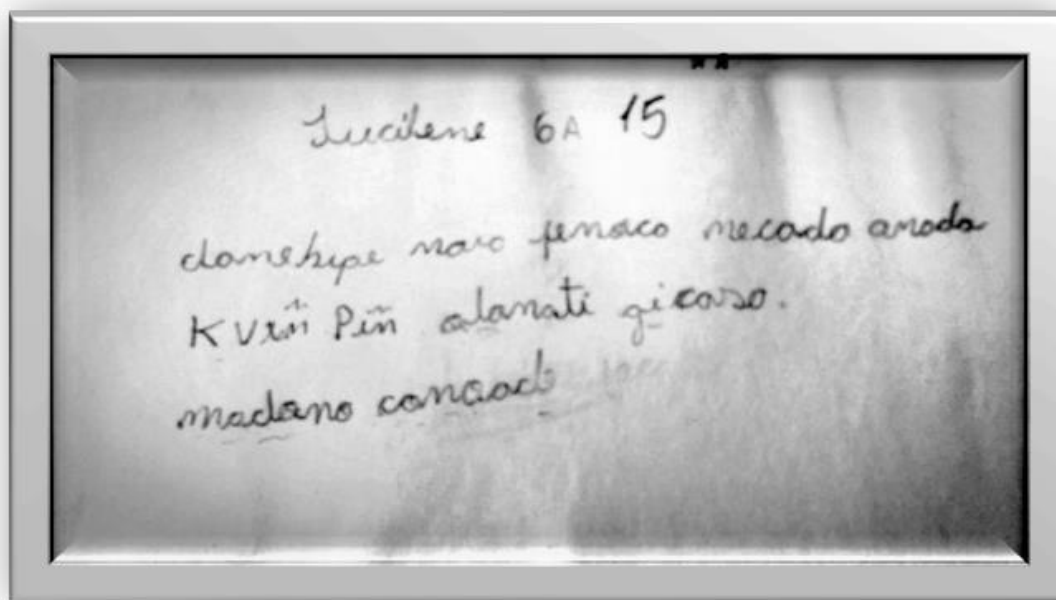 Lucilene 6A 15
clanekype naro fenaco necado anada
K V Pin alanati gicaso.
madano canaad